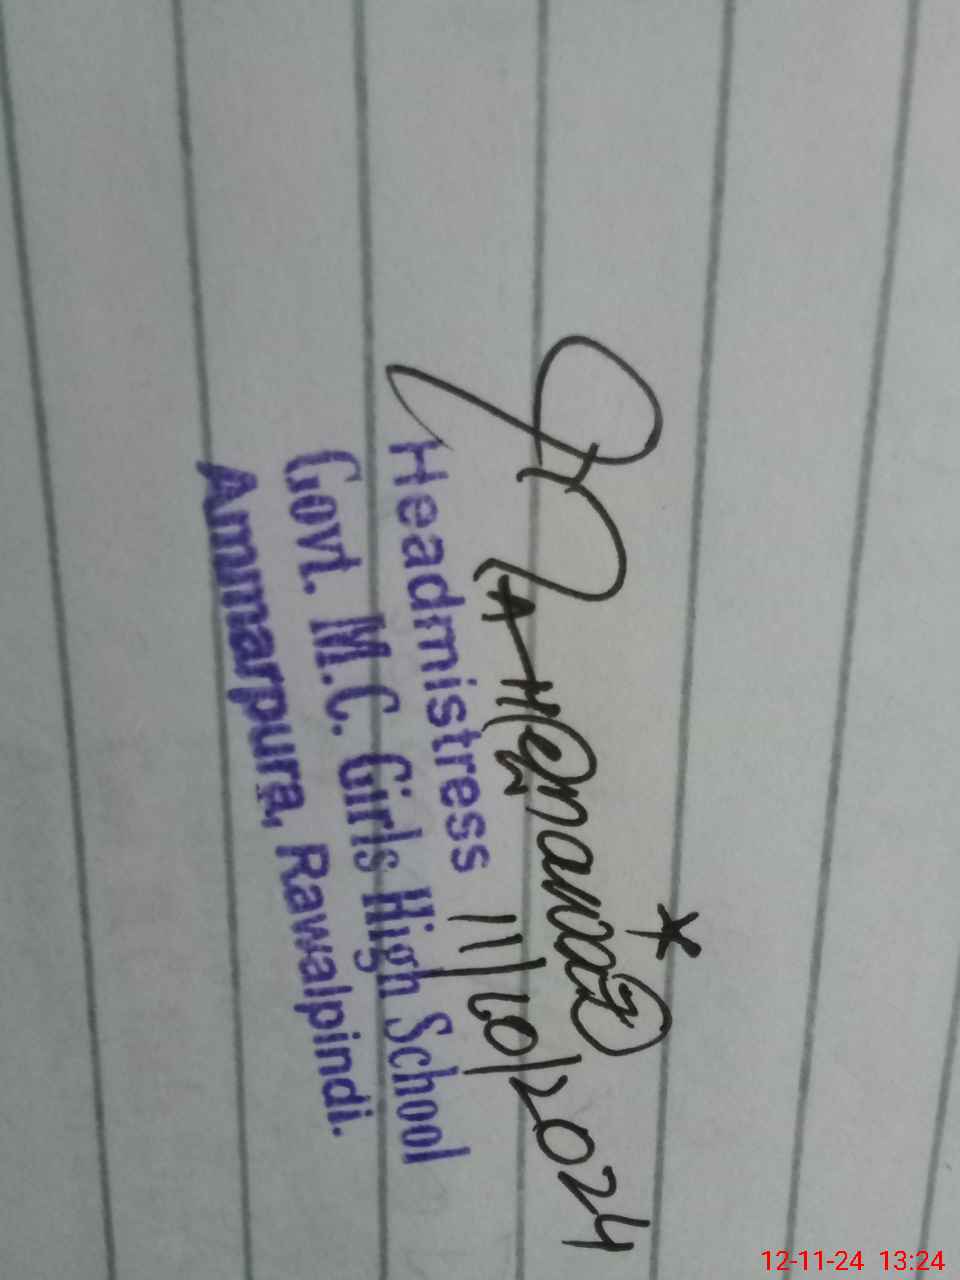 11/10/2024
Headmistress
Govt. M.C. Girls High School
Ammarpura, Rawalpindi.
12-11-24 13:24